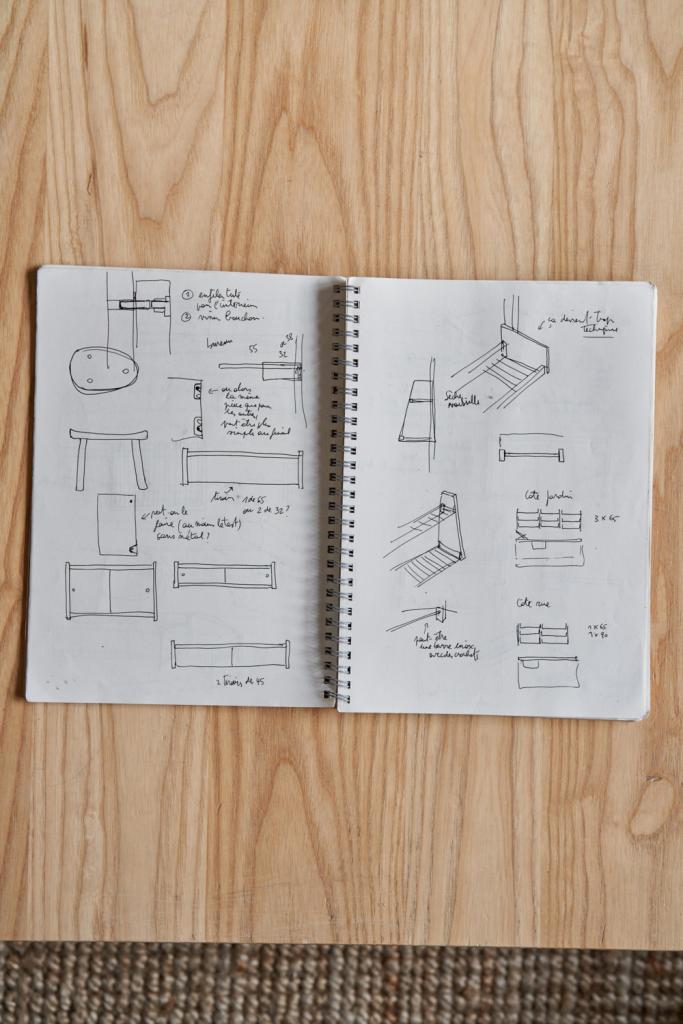 ① enfiler tube
par l'intérieur
② visser bouchon.
bureau
55
38
32
← ou alors
la même
pièce que pour
les autres,
peut-être plus
simple au final
tiroir 1 de 65
ou 2 de 32 ?
← peut-on le
faire (au moins
sans métal ?
2 tiroirs de 45
ça devient trop
technique
Sèche
vaisselle
Côté jardin
3 x 65
Côté rue
1 x 65
1 x 90
peut-être
une barre inox,
avec des crochets